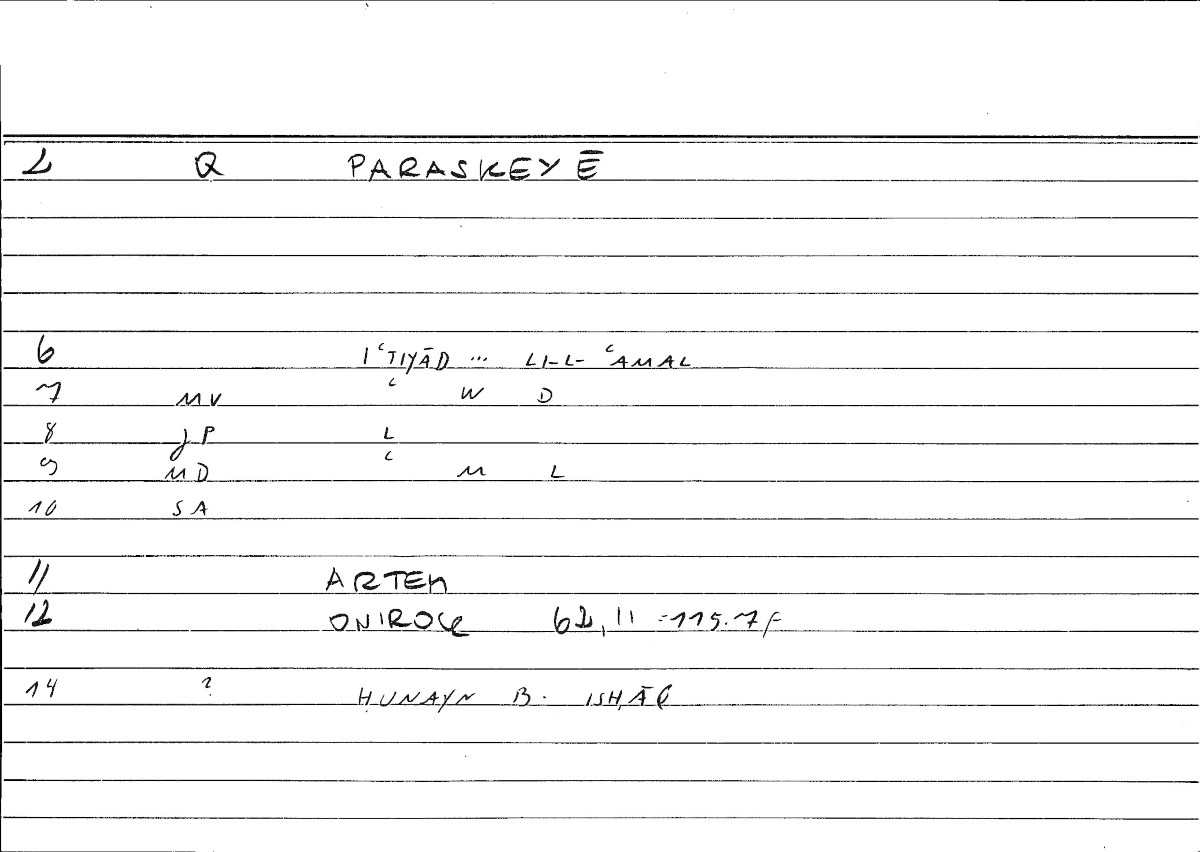 2 Q PARASKEYĒ
6 IʿTIYĀD ... LI-L-ʿAMAL
7 MV ʿ W D
8 JP L
9 MD ʿ M L
10 SA
11 ARTEM
12 ONIROCR 62,11 =115.7f
14 ? ḤUNAYN B. ISḤĀQ